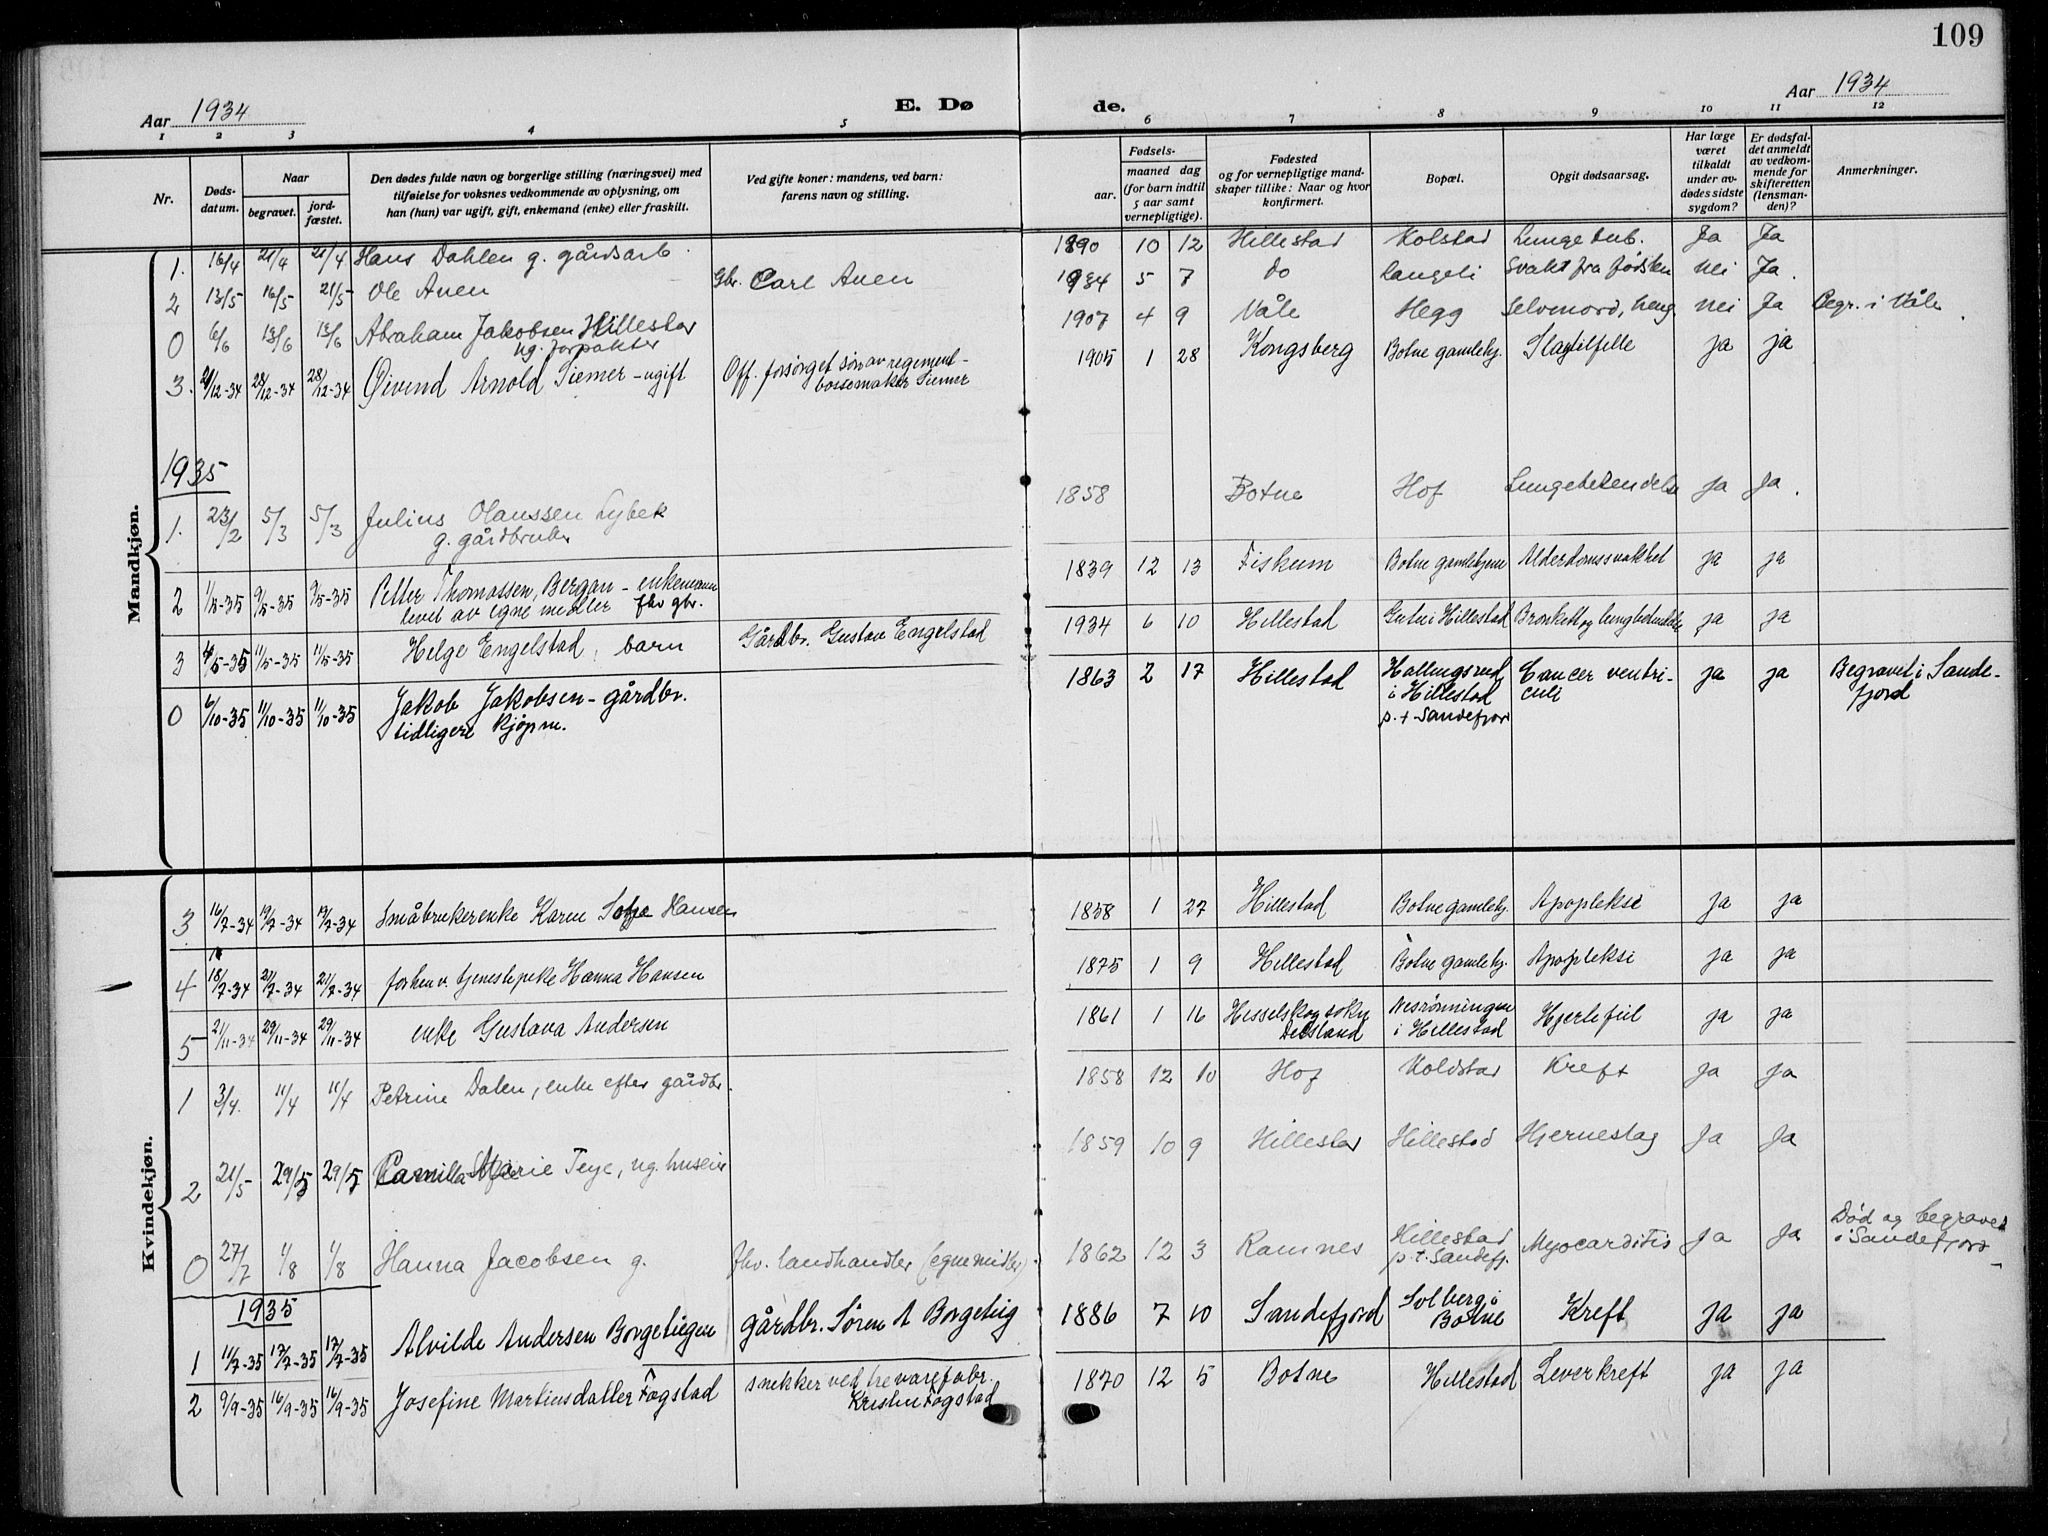 109
Aar 1934
E. Dø
de.
Aar 1934
1 2 3 4 5 6 7 8 9 10 11 12
Nr.
Døds-
datum.
Naar
begravet.
jord-
fæstet.
Den dødes fulde navn og borgerlige stilling (næringsvei) med
tilføielse for voksnes vedkommende av oplysning, om
han (hun) var ugift, gift, enkemand (enke) eller fraskilt.
Ved gifte koner: mandens, ved barn:
farens navn og stilling.
Fødsels-
aar.
maaned dag
(for barn indtil
5 aar samt
vernepligtige).
Fødested
og for vernepligtige mand-
skaper tillike: Naar og hvor
konfirmert.
Bopæl.
Opgit dødsaarsag.
Har læge
været
tilkaldt
under av-
dødes sidste
sygdom?
Er dødsfal-
det anmeldt
av vedkom-
mende for
skifteretten
(lensman-
den)?
Anmerkninger.
Mandkjøn.
1. 16/4 21/4 21/4 Hans Dahlen g. gårdsarb. 1890 10 12 Hillestad Kolstad Lungetub. Ja Ja
2 13/5 16/5 21/5 Ole Auen Gbr. Carl Auen 1934 5 7 do Langeli Svakt fra fødslen nei Ja.
0 6/6 13/6 13/6 Abraham Jakobsen Hillestad 1907 4 9 Våle Hegg Selvmord, heng. nei Ja Begr. i Våle
ug. forpakter
3. 21/12-34 28/12-34 28/12-34 Øivind Arnold Siemer - ugift Off. forsørget søn av regiment- 1905 1 28 Kongsberg Botne gamlehj. Slagtilfelle ja ja
bøssemaker Siemer
1935
1. 23/2 5/3 5/3 Julius Olaussen Lybek 1858 Botne Hof Lungebetendelse Ja Ja.
g. gårdbruker
2 1/5-35 9/5-35 9/5-35 Petter Thomassen, Bergan - enkemann 1839 12 13 Fiskum Botne gamlehjem Alderdomssvakhet ja ja
levet av egne midler fhv gbr.
3 4/5-35 11/5-35 11/5-35 Helge Engelstad, barn Gårdbr. Gustav Engelstad 1934 6 10 Hillestad Gutu i Hillestad Bronkitt og lungbetendelse ja ja
0 6/10-35 11/10-35 11/10-35 Jakob Jakobsen - gårdbr. 1863 2 17 Hillestad Hallingsrud Cancer ventri- ja ja Begravet i Sande-
tidligere kjøpm. i Hillestad culi fjord
p.t Sandefjord
Kvindekjøn.
3 16/7-34 19/7-34 19/7-34 Småbrukerenke Karen Sofie Hansen 1858 1 27 Hillestad Botne gamlehj. Apopleksi ja ja
4 18/7-34 21/7-34 21/7-34 forhenv. tjenestepike Hanna Hansen 1875 1 9 Hillestad Botne gamlehj. Apopleksi ja ja
5 21/11-34 29/11-34 29/11-34 enke Gustava Andersen 1861 1 16 Hesselskog sokn Nesrønningen Hjertefeil ja ja
Dalsland i Hillestad
1 3/4. 11/4 11/4 Petrine Dalen, enke efter gårdbr. 1858 12 10 Hof Koldstad Kreft Ja Ja
2 21/5 29/5 29/5 Camilla Marie Teye, ug. husein 1859 10 9 Hillestad Hillestad Hjerneslag Ja Ja
0 27/7 1/8 1/8 Hanna Jacobsen g. fhv. landhandler (egne midler). 1862 12 3 Ramnes Hillestad Myocarditis Ja Ja Død og begravet
p.t. Sandefj. i Sandefjord
1935
1 11/7-35 17/7-35 17/7-35 Alvilde Andersen Borgetiegen gårdbr. Søren A Borgetiig 1886 7 10 Sandefjord Solberg i Kreft ja ja
Botne
2 9/9-35 16/9-35 16/9-35 Josefine Martinsdatter Fogstad snekker ved trevarefabr. 1870 12 5 Botne Hillestad Leverkreft ja ja
Kristen Fogstad